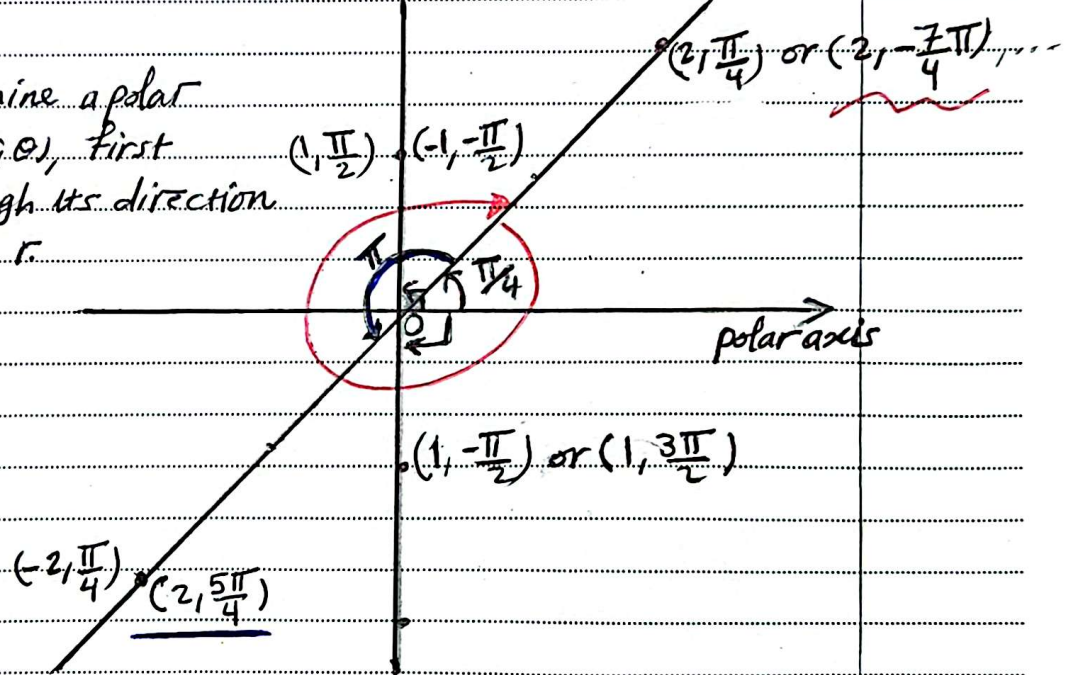 (2, π/4) or (2, -7π/4), ...
ine a polar
θ), first
(1, π/2) (-1, -π/2)
gh its direction
r.
π
π/4
O
polar axis
(1, -π/2) or (1, 3π/2)
(-2, π/4)
(2, 5π/4)